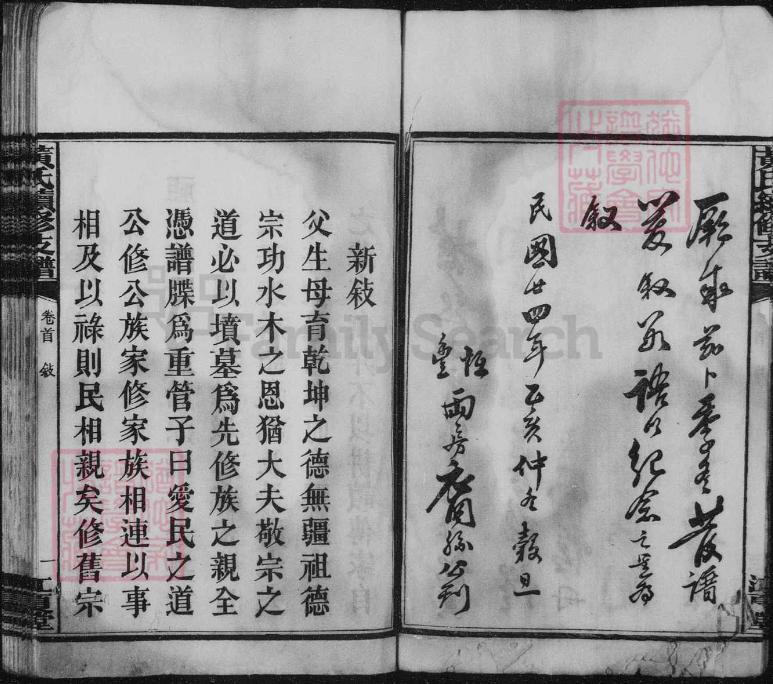 厥成茲卜季冬發譜
爰敘
數語以紀念之是為
敘
民國廿四年乙亥仲冬穀旦
恒豐兩房裔孫公刊
黃氏續修支譜
新敍
父生母育乾坤之德無疆祖德
宗功水木之恩猶大夫敬宗之
道必以墳墓爲先修族之親全
憑譜牒爲重管子曰愛民之道
公修公族家修家族相連以事
相及以祿則民相親矣修舊宗
黃氏續修支譜
卷首
敍
一
江夏堂
FamilySearch